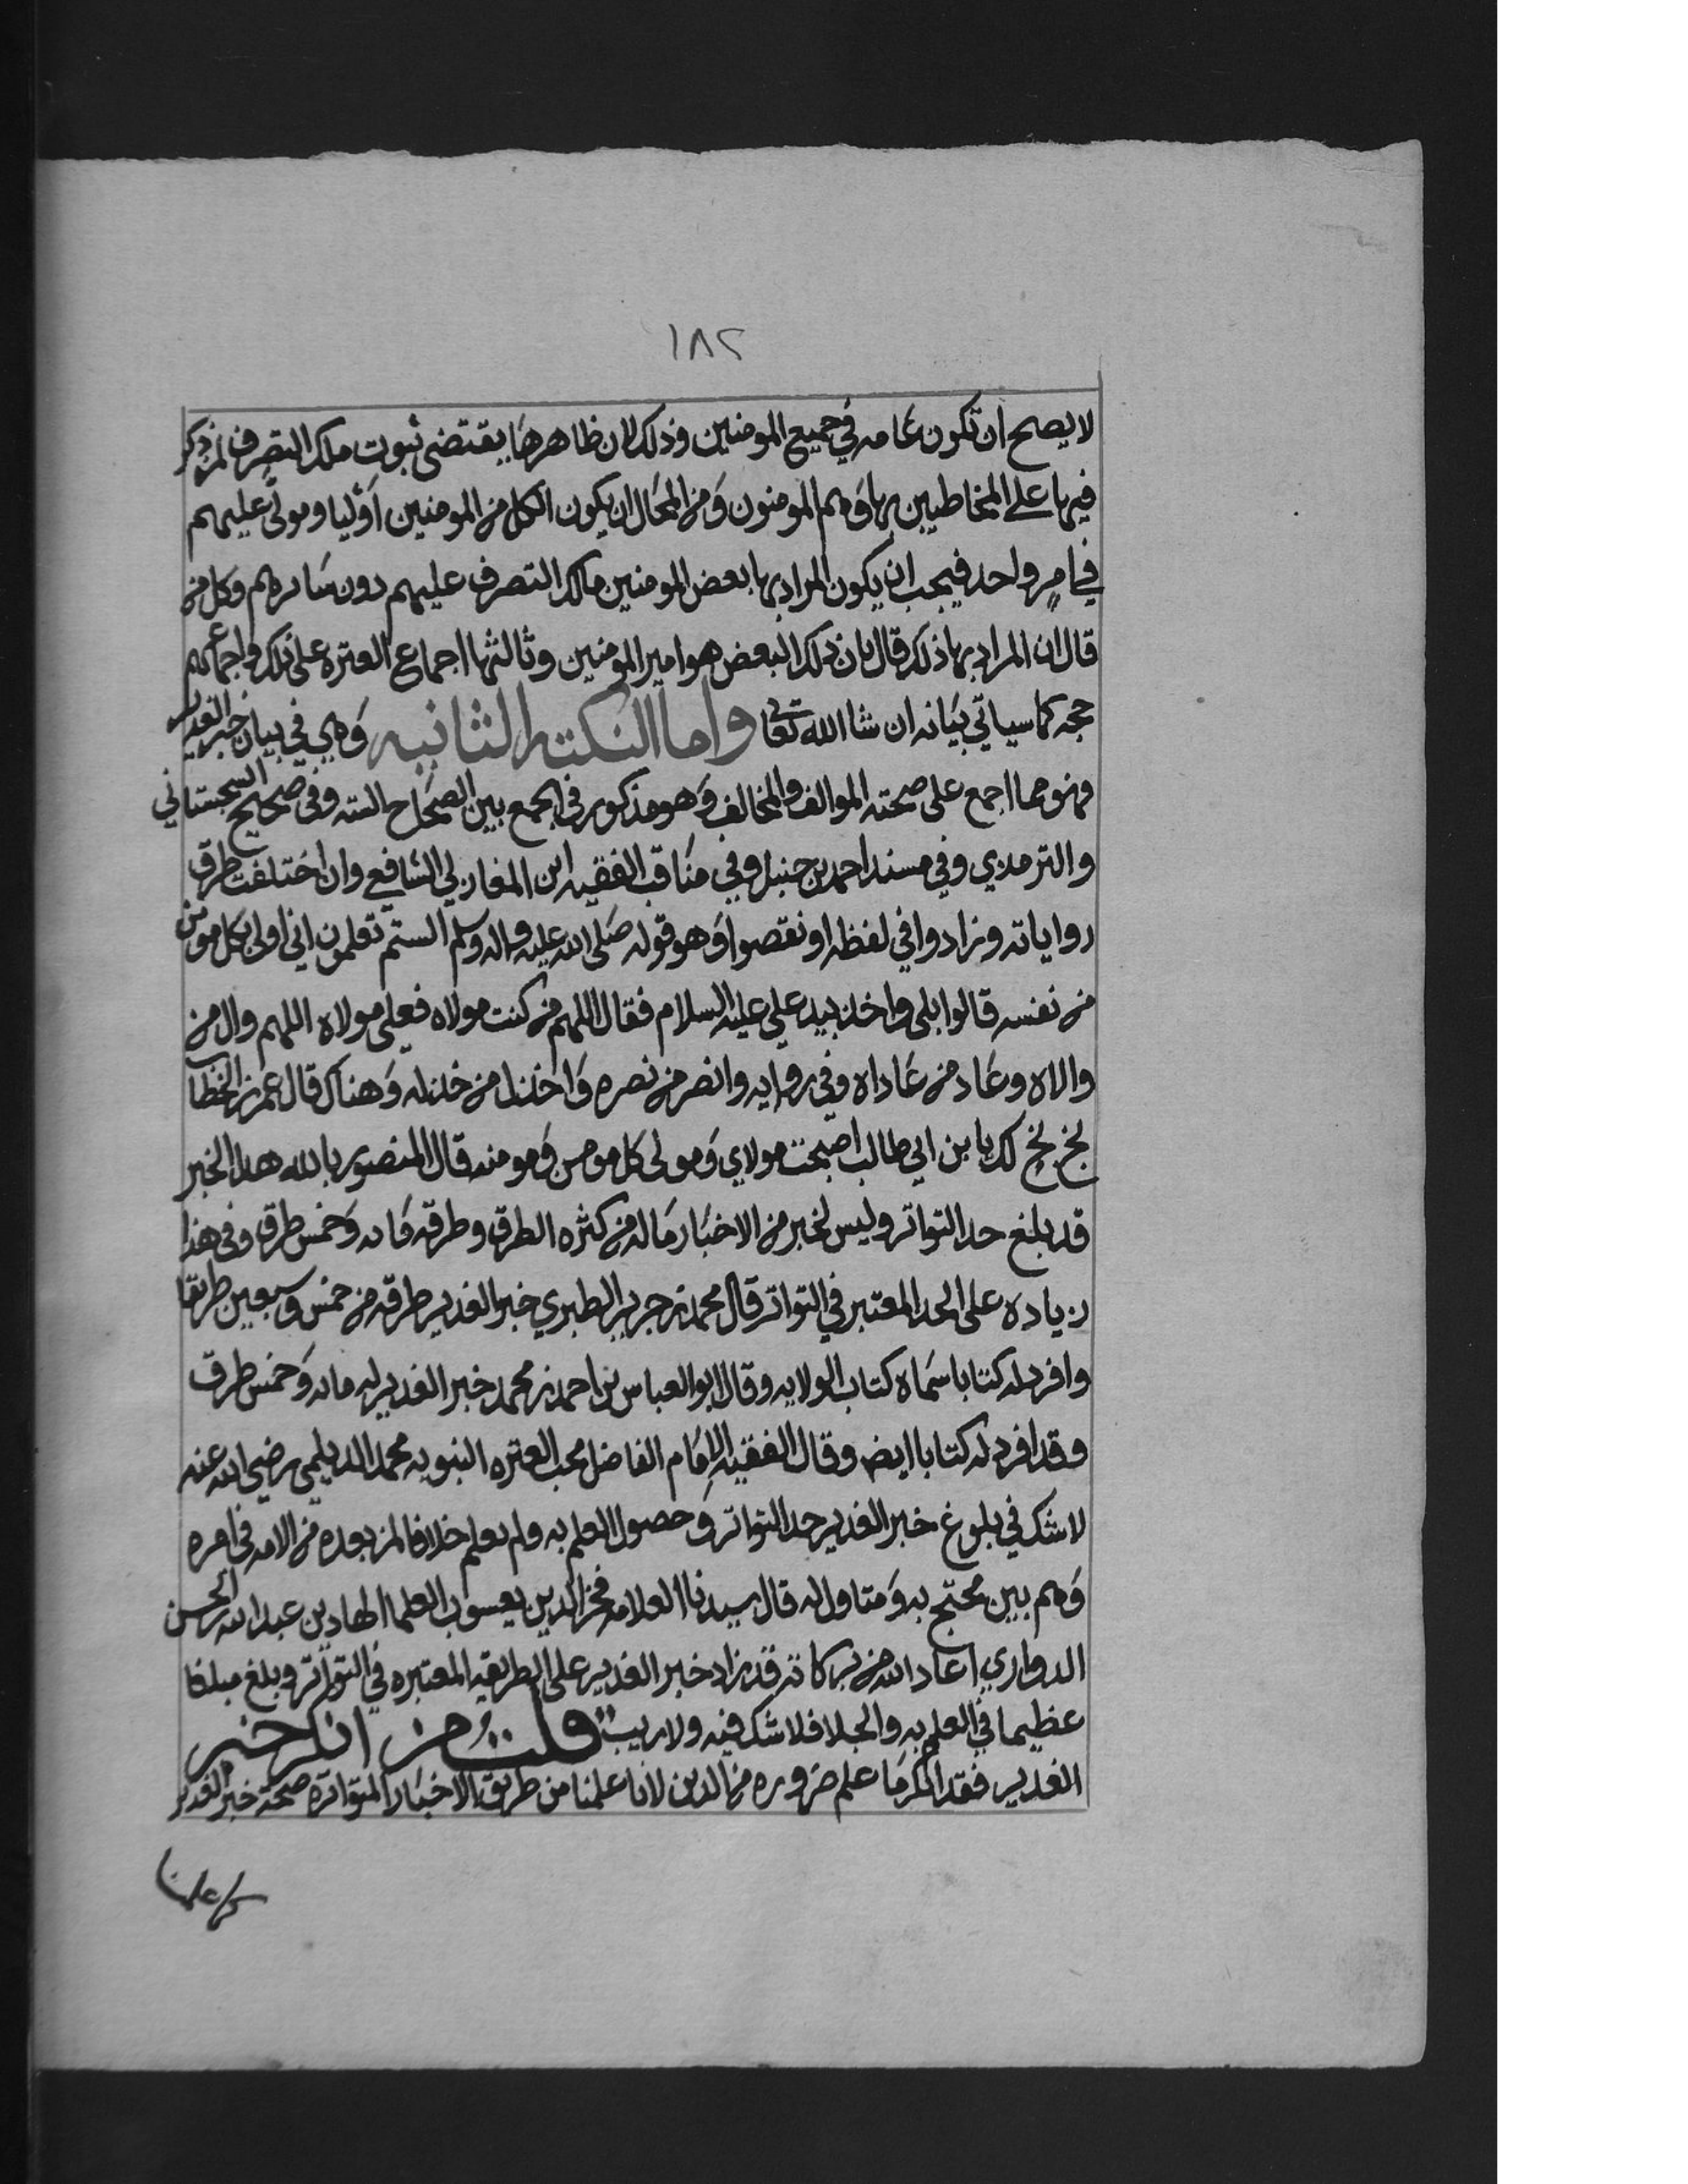 ١٨٢
لا يصح ان تكون عامه في جميع المومنين وذلك لان ظاهرها يقتضى ثبوت ملك التصرف لمن ذكر
فيها على المخاطبين بها وهم المومنون ومن المحال ان يكون الكل من المومنين اوليا ومولى عليهم
في امر واحد فيجب ان يكون المراد بها بعض المومنين مالك التصرف عليهم دون سايرهم وكل من
قال ان المراد بها ذلك قال بان ذلك البعض هو امير المومنين وثالثها اجماع العتره على ذلك واجماعهم
حجه كما سياتي بيانه ان شا الله تعالى واما النكته الثانيه وهي في بيان خبر الغدير
فهو مما اجمع على صحته الموالف والمخالف وهو مذكور في الجمع بين الصحاح السته وفي صحيح السجستاني
والترمذي وفي مسند احمد بن حنبل وفي مناقب الفقيه ابن المغازلي الشافعي وان اختلفت طرق
رواياته وزادوا في لفظه او نقصوا وهو قوله صلى الله عليه واله وسلم الستم تعلمون اني اولى بكل مومن
من نفسه قالوا بلى واخذ بيد علي عليه السلام فقال اللهم من كنت مولاه فعلي مولاه اللهم وال من
والاه وعاد من عاداه وفي روايه وانصر من نصره واخذل من خذله وهناك قال عمر بن الخطاب
بخ بخ لك يا بن ابي طالب اصبحت مولاي ومولى كل مومن ومومنه قال المنصور بالله هذا الخبر
قد بلغ حد التواتر وليس لخبر من الاخبار ماله من كثره الطرق وطرقه مايه وخمس طرق وفى هذا
زياده على الحد المعتبر في التواتر قال محمد بن جرير الطبري خبر الغدير طرقه من خمس وسبعين طريقا
وافرد له كتابا سماه كتاب الولايه وقال ابو العباس بن احمد بن محمد خبر الغدير له مايه وخمس طرق
وقد افرد له كتابا ايض وقال الفقيه الامام الفاضل محب العتره النبويه محمد الديلمي رضي الله عنه
لا شك في بلوغ خبر الغدير حد التواتر وحصول العلم به ولم نعلم خلافا لمن بعده من الامه في امره
وهم بين محتج به ومتاول له قال سيدنا العلامه فخر الدين يعسوب العلما الهادي بن عبد الله الحسن
الدواري اعاد الله من بركاته قد زاد خبر الغدير على الطريقه المعتبره في التواتر وبلغ مبلغا
عظيما في العلم به والجلا فلا شك فيه ولا ريب قلت من انكر خبر
الغدير فقد انكر ما علم ضروره من الدين لانا علمنا من طريق الاخبار المتواتره صحة خبر الغدير
كما علمنا